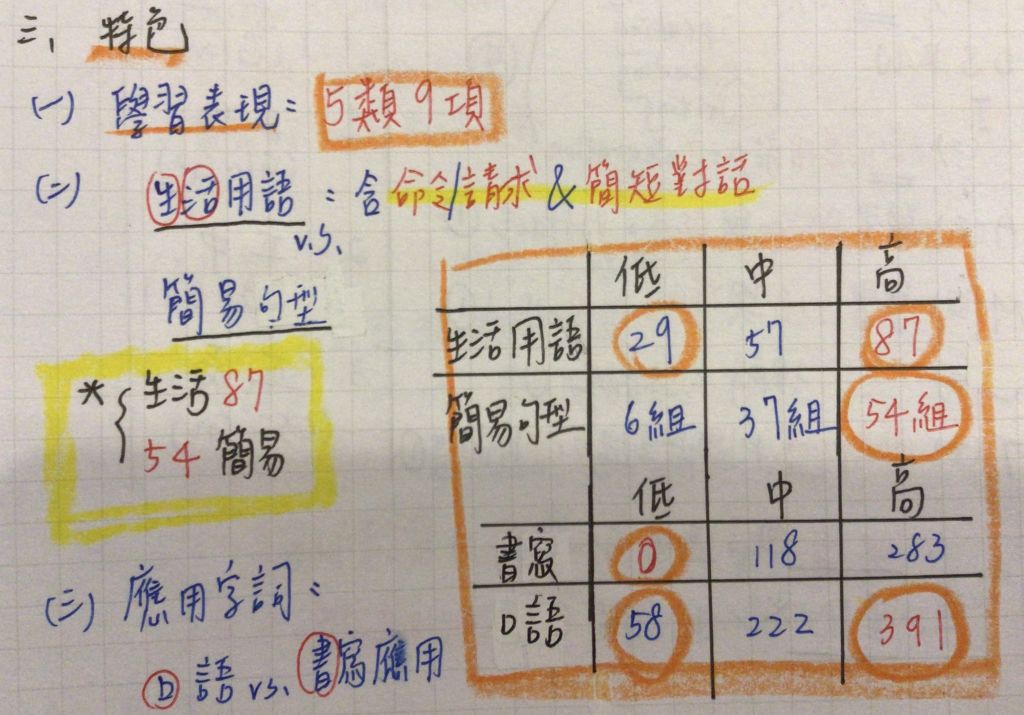 三、特色
(一) 學習表現: 5類9項
(二) 生活用語: 含命令/請求 & 簡短對話
v.s.
簡易句型
* { 生活 87
54 簡易
低 中 高
生活用語 29 57 87
簡易句型 6組 37組 54組
低 中 高
書寫 0 118 283
口語 58 222 391
(三) 應用字詞:
口語 vs. 書寫應用